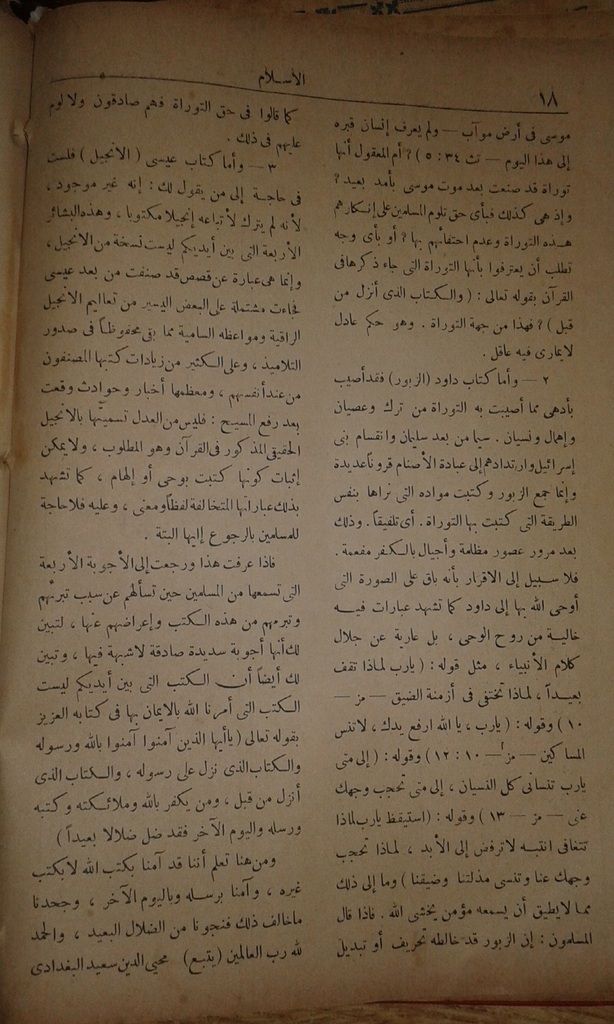 ١٨
الإسلام
موسى فى أرض موآب — ولم يعرف إنسان قبره
إلى هذا اليوم — تث ٣٤ : ٥ ) ؟ أم المعقول أنها
توراة قد صنعت بعد موت موسى بأمد بعيد ؟
وإذ هى كذلك فبأى حق تلوم المسلمين على إنكارهم
هذه التوراة وعدم احتفائهم بها ؟ أو بأى وجه
تطلب أن يعترفوا بأنها التوراة التى جاء ذكرها فى
القرآن بقوله تعالى : ( والكتاب الذى أنزل من
قبل ) ؟ فهذا من جهة التوراة . وهو حكم عادل
لا يمارى فيه عاقل .
٢ — وأما كتاب داود (الزبور) فقد أصيب
بأدهى مما أصيبت به التوراة من ترك وعصيان
وإهمال ونسيان . سيما من بعد سليمان وانقسام بنى
إسرائيل وارتدادهم إلى عبادة الأصنام قروناً عديدة
وإنما جمع الزبور وكتبت مواده التى نراها بنفس
الطريقة التى كتبت بها التوراة . أى تلفيقاً . وذلك
بعد مرور عصور مظلمة وأجيال بالكفر مفعمة .
فلا سبيل إلى الاقرار بأنه باق على الصورة التى
أوحى الله بها إلى داود كما تشهد عبارات فيه
خالية من روح الوحى ، بل عارية عن جلال
كلام الأنبياء ، مثل قوله : ( يارب لماذا تقف
بعيداً ، لماذا تختفى فى أزمنة الضيق — مز —
١٠ ) وقوله : ( يارب ، يا الله ارفع يدك ، لا تنس
المساكين — مز — ١٠ : ١٢ ) وقوله : ( إلى متى
يارب تنسانى كل النسيان ، إلى متى تحجب وجهك
عنى — مز — ١٣ ) وقوله : (استيقظ يارب لماذا
تتغافى انتبه لا ترفض إلى الأبد ، لماذا تحجب
وجهك عنا وتنسى مذلتنا وضيقنا ) وما إلى ذلك
مما لا يطيق أن يسمعه مؤمن يخشى الله . فاذا قال
المسلمون : إن الزبور قد خالطه تحريف أو تبديل
كما قالوا فى حق التوراة فهم صادقون ولا لوم
عليهم فى ذلك .
٣ — وأما كتاب عيسى ( الانجيل ) فلست
فى حاجة إلى من يقول لك : إنه غير موجود ،
لأنه لم يترك لأتباعه إنجيلا مكتوبا ، وهذه البشائر
الأربعة التى بين أيديكم ليست نسخة من الانجيل ،
وإنما هى عبارة عن قصص قد صنفت من بعد عيسى
فجاءت مشتملة على البعض اليسير من تعاليم الانجيل
الراقية ومواعظه السامية مما بقى محفوظاً فى صدور
التلاميذ ، وعلى الكثير من زيادات كتبها المصنفون
من عند أنفسهم ، ومعظمها أخبار وحوادث وقعت
بعد رفع المسيح : فليس من العدل تسميتها بالانجيل
الحقيقى المذكور فى القرآن وهو المطلوب ، ولا يمكن
إثبات كونها كتبت بوحى أو إلهام ، كما تشهد
بذلك عباراتها المتخالفة لفظاً ومعنى ، وعليه فلا حاجة
للمسلمين بالرجوع إليها البتة .
فاذا عرفت هذا ورجعت إلى الأجوبة الأربعة
التى تسمعها من المسلمين حين تسألهم عن سبب تبريهم
وتبرمهم من هذه الكتب وإعراضهم عنها ، لتبين
لك أنها أجوبة سديدة صادقة لا شبهة فيها ، وتبين
لك أيضاً أن الكتب التى بين أيديكم ليست
الكتب التى أمرنا الله بالايمان بها فى كتابه العزيز
بقوله تعالى ( يا أيها الذين آمنوا آمنوا بالله ورسوله
والكتاب الذى نزل على رسوله ، والكتاب الذى
أنزل من قبل ، ومن يكفر بالله وملائكته وكتبه
ورسله واليوم الآخر فقد ضل ضلالا بعيداً )
ومن هنا تعلم أننا قد آمنا بكتب الله لا بكتب
غيره ، وآمنا برسله وباليوم الآخر ، وجحدنا
ما خالف ذلك فنجونا من الضلال البعيد ، والحمد
لله رب العالمين (يتبع) محيى الدين سعيد البغدادى